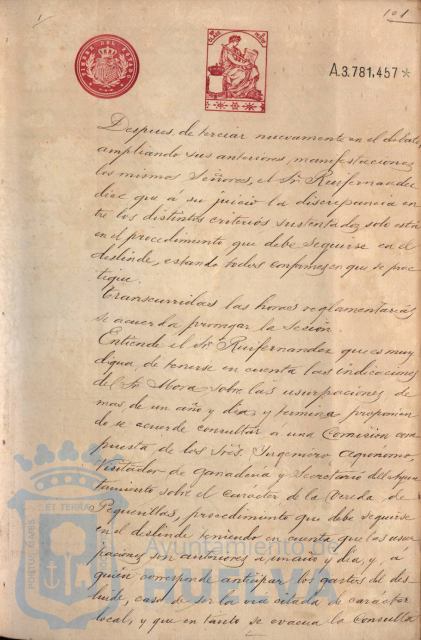 101
TIMBRE DEL ESTADO
A.3.781,457*
Despues de terciar nuevamente en el debate,
ampliando sus anteriores manifestaciones
los mismos Señores, el Sr. Ruifernandez
dice que á su juicio la discrepancia en
tre los distintos criterios sustentados solo está
en el procedimiento que debe seguirse en el
deslinde, estando todos conformes en que se prac
tique.
Transcurridas las horas reglamentarias
se acuerda prorrogar la sesión.
Entiende el Sr. Ruifernandez que es muy
digna de tenerse en cuenta las indicaciones
del Sr. Mora sobre las usurpaciones de
mas de un año y dia, y termina proponien
do se acuerde consultar a una Comisión com
puesta de los Sres. Ingeniero Agronomo,
Visitador de Ganaderia y Secretario del Ayun
tamiento sobre el carácter de la Vereda de
procedimiento que debe seguirse
en el deslinde teniendo en cuenta que las usur
paciones son anteriores a un año y dia, y á
quién corresponde anticipar los gastos del des
linde, caso de ser la via citada de carácter
local, y que en tanto se evacua la consulta
Ayuntamiento de
HUELVA
PORTUS MARIS
ET TERRAE
CUSTODIA